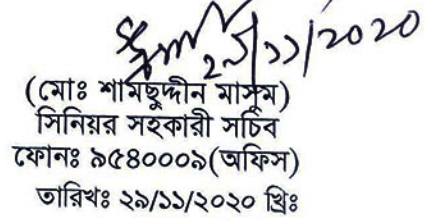 ২৯/১১/২০২০
(মোঃ শামছুদ্দীন মাসুম)
সিনিয়র সহকারী সচিব
ফোনঃ ৯৫৪০০০৯(অফিস)
তারিখঃ ২৯/১১/২০২০ খ্রিঃ